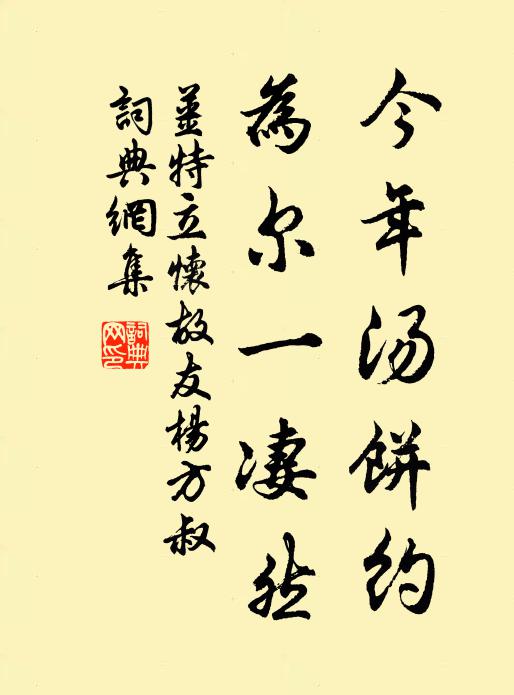 今年汤餅约
為尔一凄然
姜特立懷故友楊方叔
詞典網集
詞典网印